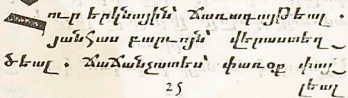 ուր երկնային՝ ճառագայթեալ .
յանհաս բարույն՝ վերաստեղ֊
ծեալ . ճաճանչատես՝ փառօք փայ֊
25 լեալ